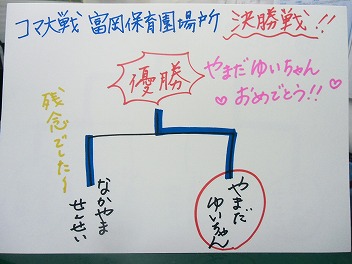 コマ大戦 富岡保育園場所 決勝戦!!
優勝
やまだゆいちゃん
おめでとう!!
残念でした〜
なかやま
せんせい
やまだ
ゆいちゃん